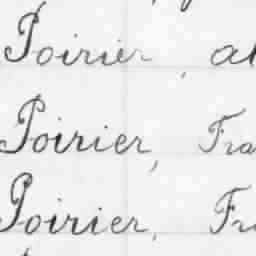 Poirier, al
Poirier, Fra
Poirier, Fr